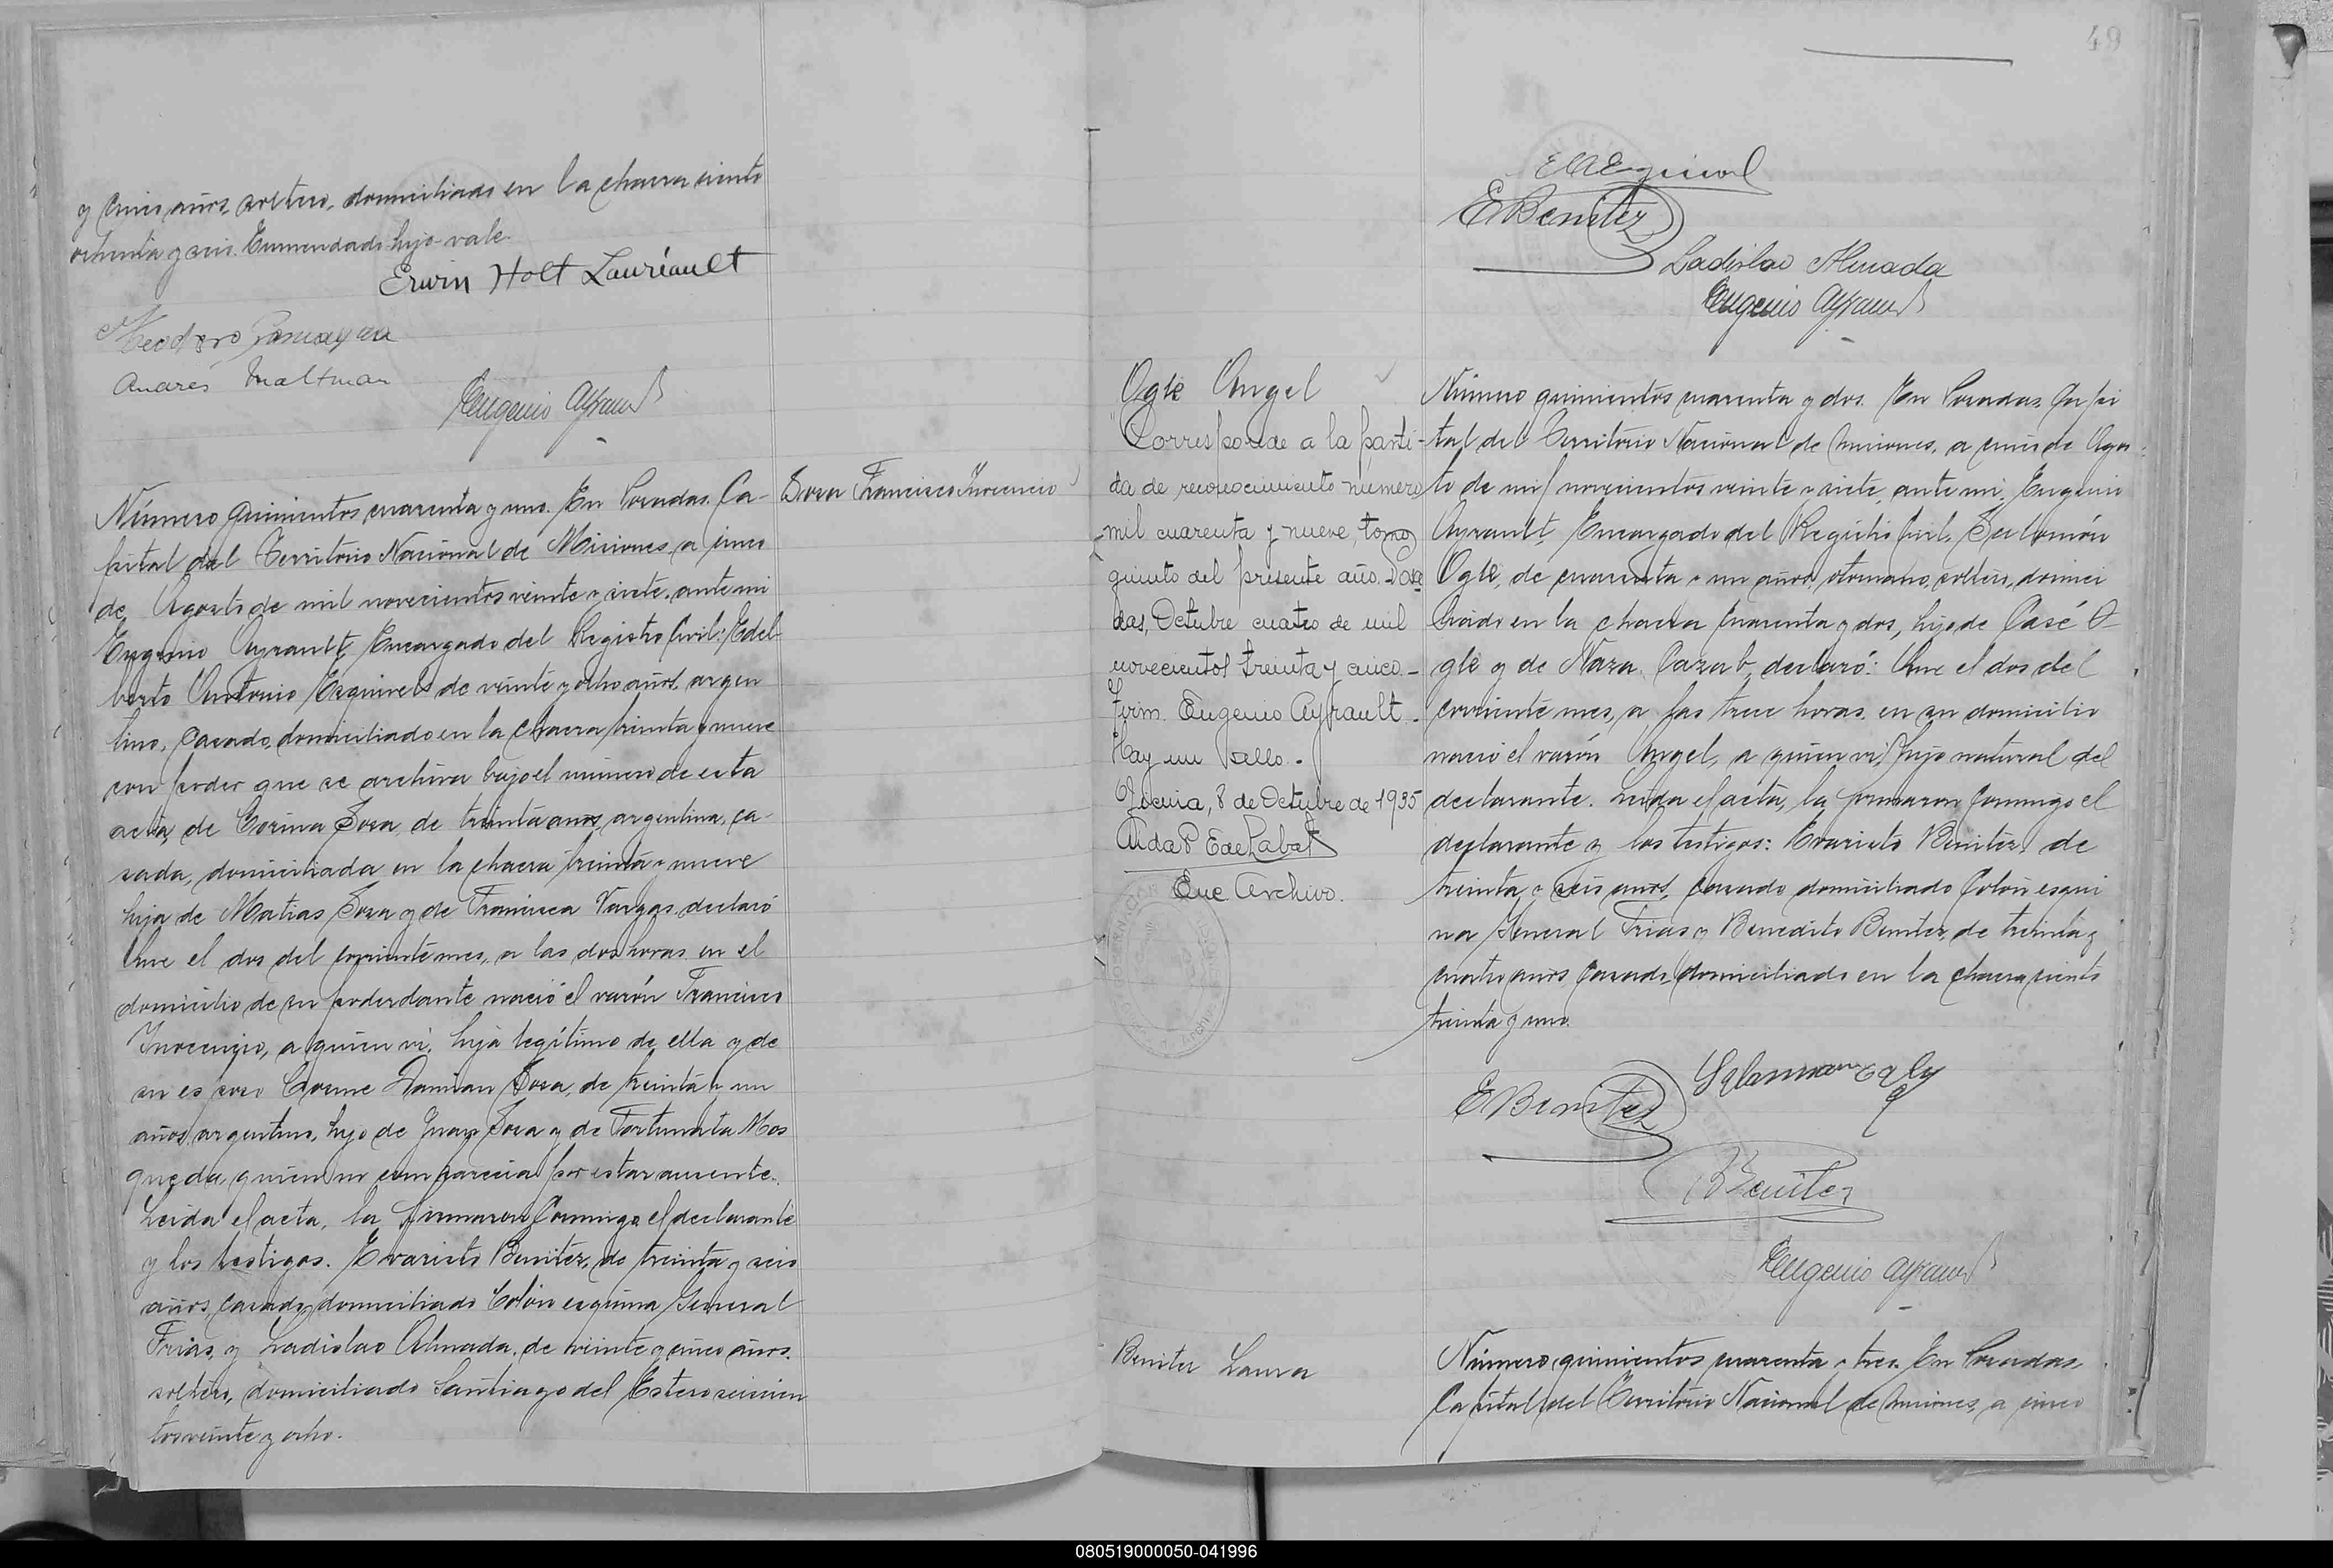 y cinco años, soltero, domiciliado en la chacra ciento
ochenta y seis. Enmendado-hijo-vale.
Erwin Holt Lauriault
Teodoro
Andrés Maltman
Eugenio Ayrault
Número quinientos cuarenta y uno. En Posadas, Ca-
pital del Territorio Nacional de Misiones, a cinco
de Agosto de mil novecientos veinte y siete, ante mi
Eugenio Ayrault, Encargado del Registro Civil: Edel-
berto Antonio Esquivel, de veinte y ocho años, argen
tino, casado, domiciliado en la chacra treinta y nueve
con poder que se archiva bajo el número de esta
acta, de Corina Sosa, de treinta años, argentina, ca-
sada, domiciliada en la chacra treinta y nueve
hija de Matias Sosa y de Francisca Vargas, declaró
Que el dos del corriente mes, a las dos horas, en el
domicilio de su poderdante nació el varón Francisco
Inocencio, a quien vi, hijo legítimo de ella y de
su esposo Cosme Damian Sosa, de treinta y un
años, argentino, hijo de Juan Sosa y de Fortunata Mos
queda, quien no comparecia por estar ausente.
Leida el acta, la firmaron conmigo el declarante
y los testigos. Evaristo Benitez, de treinta y seis
años, casado, domiciliado Colón esquina General
Frias, y Ladislao Almada, de veinte y cinco años,
soltero, domiciliado Santiago del Estero seiscien
tos veinte y ocho.
Sosa Francisco Inocencio
49
EAEsquivel
EBenitez
Ladislao Almada
Eugenio Ayrault
Ogle Angel
Corresponde a la parti-
da de reconocimiento número
mil cuarenta y nueve, tomo
quinto del presente año. Posa
das, Octubre cuatro de mil
novecientos treinta y cinco.-
Firm. Eugenio Ayrault.-
Hay un sello.-
Oficina, 8 de Octubre de 1935
Aida P
Enc Archivo.
Número quinientos cuarenta y dos. En Posadas, Capi
tal del Territorio Nacional de Misiones, a cinco de Agos-
to de mil novecientos veinte y siete, ante mi, Eugenio
Ayrault, Encargado del Registro Civil, Salomón
Ogle, de cuarenta y un años, otomano, soltero, domici
liado en la chacra cuarenta y dos, hijo de Casé O-
gle y de Naza Cazab, declaró: Que el dos del
corriente mes, a las trece horas, en su domicilio
nació el varón Angel, a quien vi, hijo natural del
declarante. Leida el acta, la firmaron conmigo el
declarante y los testigos: Evaristo Benitez, de
treinta y seis años, casado domiciliado Colón esqui
na General Frias y Benedito Benitez, de treinta y
cuatro años, casado, domiciliado en la chacra ciento
treinta y uno.
EBenitez
BBenitez
Eugenio Ayrault
Benitez Laura
Número quinientos cuarenta y tres. En Posadas,
Capital del Territorio Nacional de Misiones, a cinco
080519000050-041996